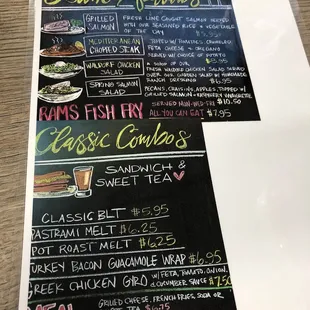 GRILLED SALMON
FRESH LINE CAUGHT SALMON SERVED
WITH OUR SEASONED RICE & VEGETABLE
OF THE DAY
MEDITERRANEAN CHOPPED STEAK
TOPPED W/ TOMATOES, CRUMBLED
FETA CHEESE & OREGANO
SERVED W/ CHOICE OF POTATO
WALDORF CHICKEN SALAD
A SCOOP OF OUR
FRESH WALDORF CHICKEN SALAD SERVED
OVER OUR GARDEN SALAD W/ HOMEMADE
RANCH DRESSING $6.95
SPRING SALMON SALAD
PECANS, CRAISINS, APPLES, TOPPED W/
GRILLED SALMON & RASPBERRY VINAIGRETTE
$10.50
RAMS FISH FRY
SERVED MON-WED-FRI
ALL YOU CAN EAT $7.95
Classic Combos
SANDWICH &
SWEET TEA
CLASSIC BLT $5.95
PASTRAMI MELT $6.25
POT ROAST MELT $6.25
TURKEY BACON GUACAMOLE WRAP $6.95
GREEK CHICKEN GIRO W/ FETA, TOMATO, ONION,
& CUCUMBER SAUCE $7.50
GRILLED CHEESE, FRENCH FRIES, SODA OR
TEA $6.75